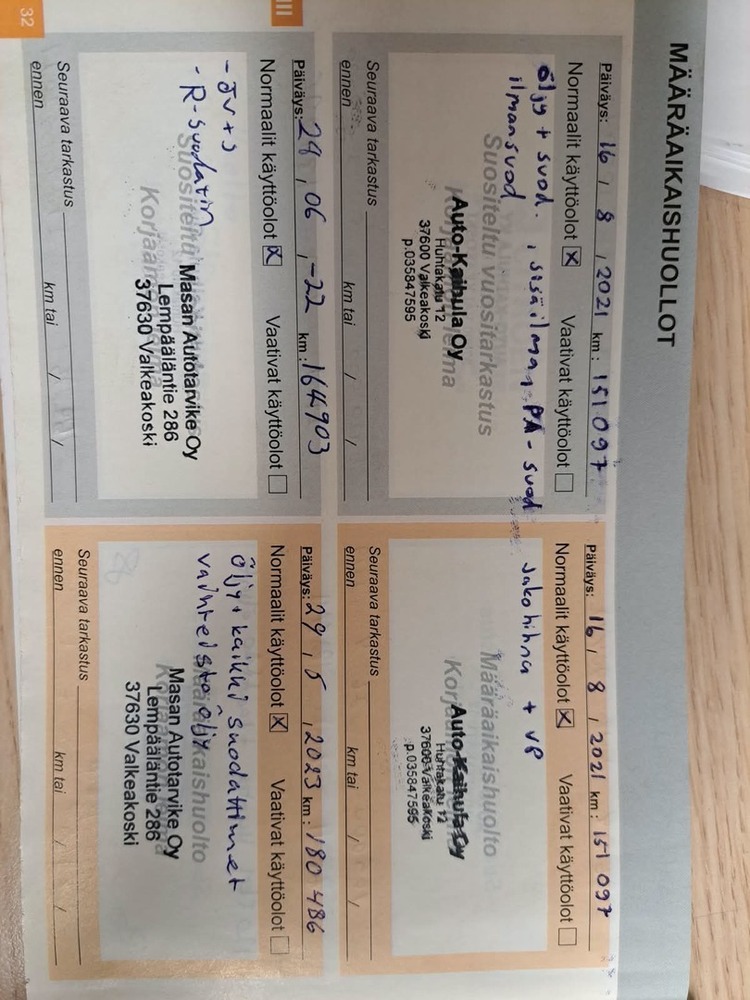 MÄÄRÄAIKAISHUOLLOT
Päiväys: 16 / 8 / 2021 km: 151 097
Normaalit käyttöolot ☒ Vaativat käyttöolot ☐
öljy + suod. , sisäilman, PA-suod
ilmansuod
Suositeltu vuositarkastus
Auto-Kaihula Oy
Huhtakatu 12
37600 Valkeakoski
p.035847595
Seuraava tarkastus
ennen km tai / /
Päiväys: 16 / 8 / 2021 km: 151 097
Normaalit käyttöolot ☒ Vaativat käyttöolot ☐
Jakohihna + VP
Määräaikaishuolto
Auto-Kaihula Oy
Huhtakatu 12
37600 Valkeakoski
p.035847595
Seuraava tarkastus
ennen km tai / /
III
Päiväys: 28 , 06 , -22 km: 164903
Normaalit käyttöolot ☒ Vaativat käyttöolot ☐
- öv+s
- R-suodatin
Suositeltu
Masan Autotarvike Oy
Lempääläntie 286
37630 Valkeakoski
Seuraava tarkastus
ennen km tai / /
32
Päiväys: 29 , 5 , 2023 km: 180 486
Normaalit käyttöolot ☒ Vaativat käyttöolot ☐
öljy + kaikki suodattimet
vaihteisto öljy
Määräaikaishuolto
Masan Autotarvike Oy
Lempääläntie 286
37630 Valkeakoski
Seuraava tarkastus
ennen km tai / /